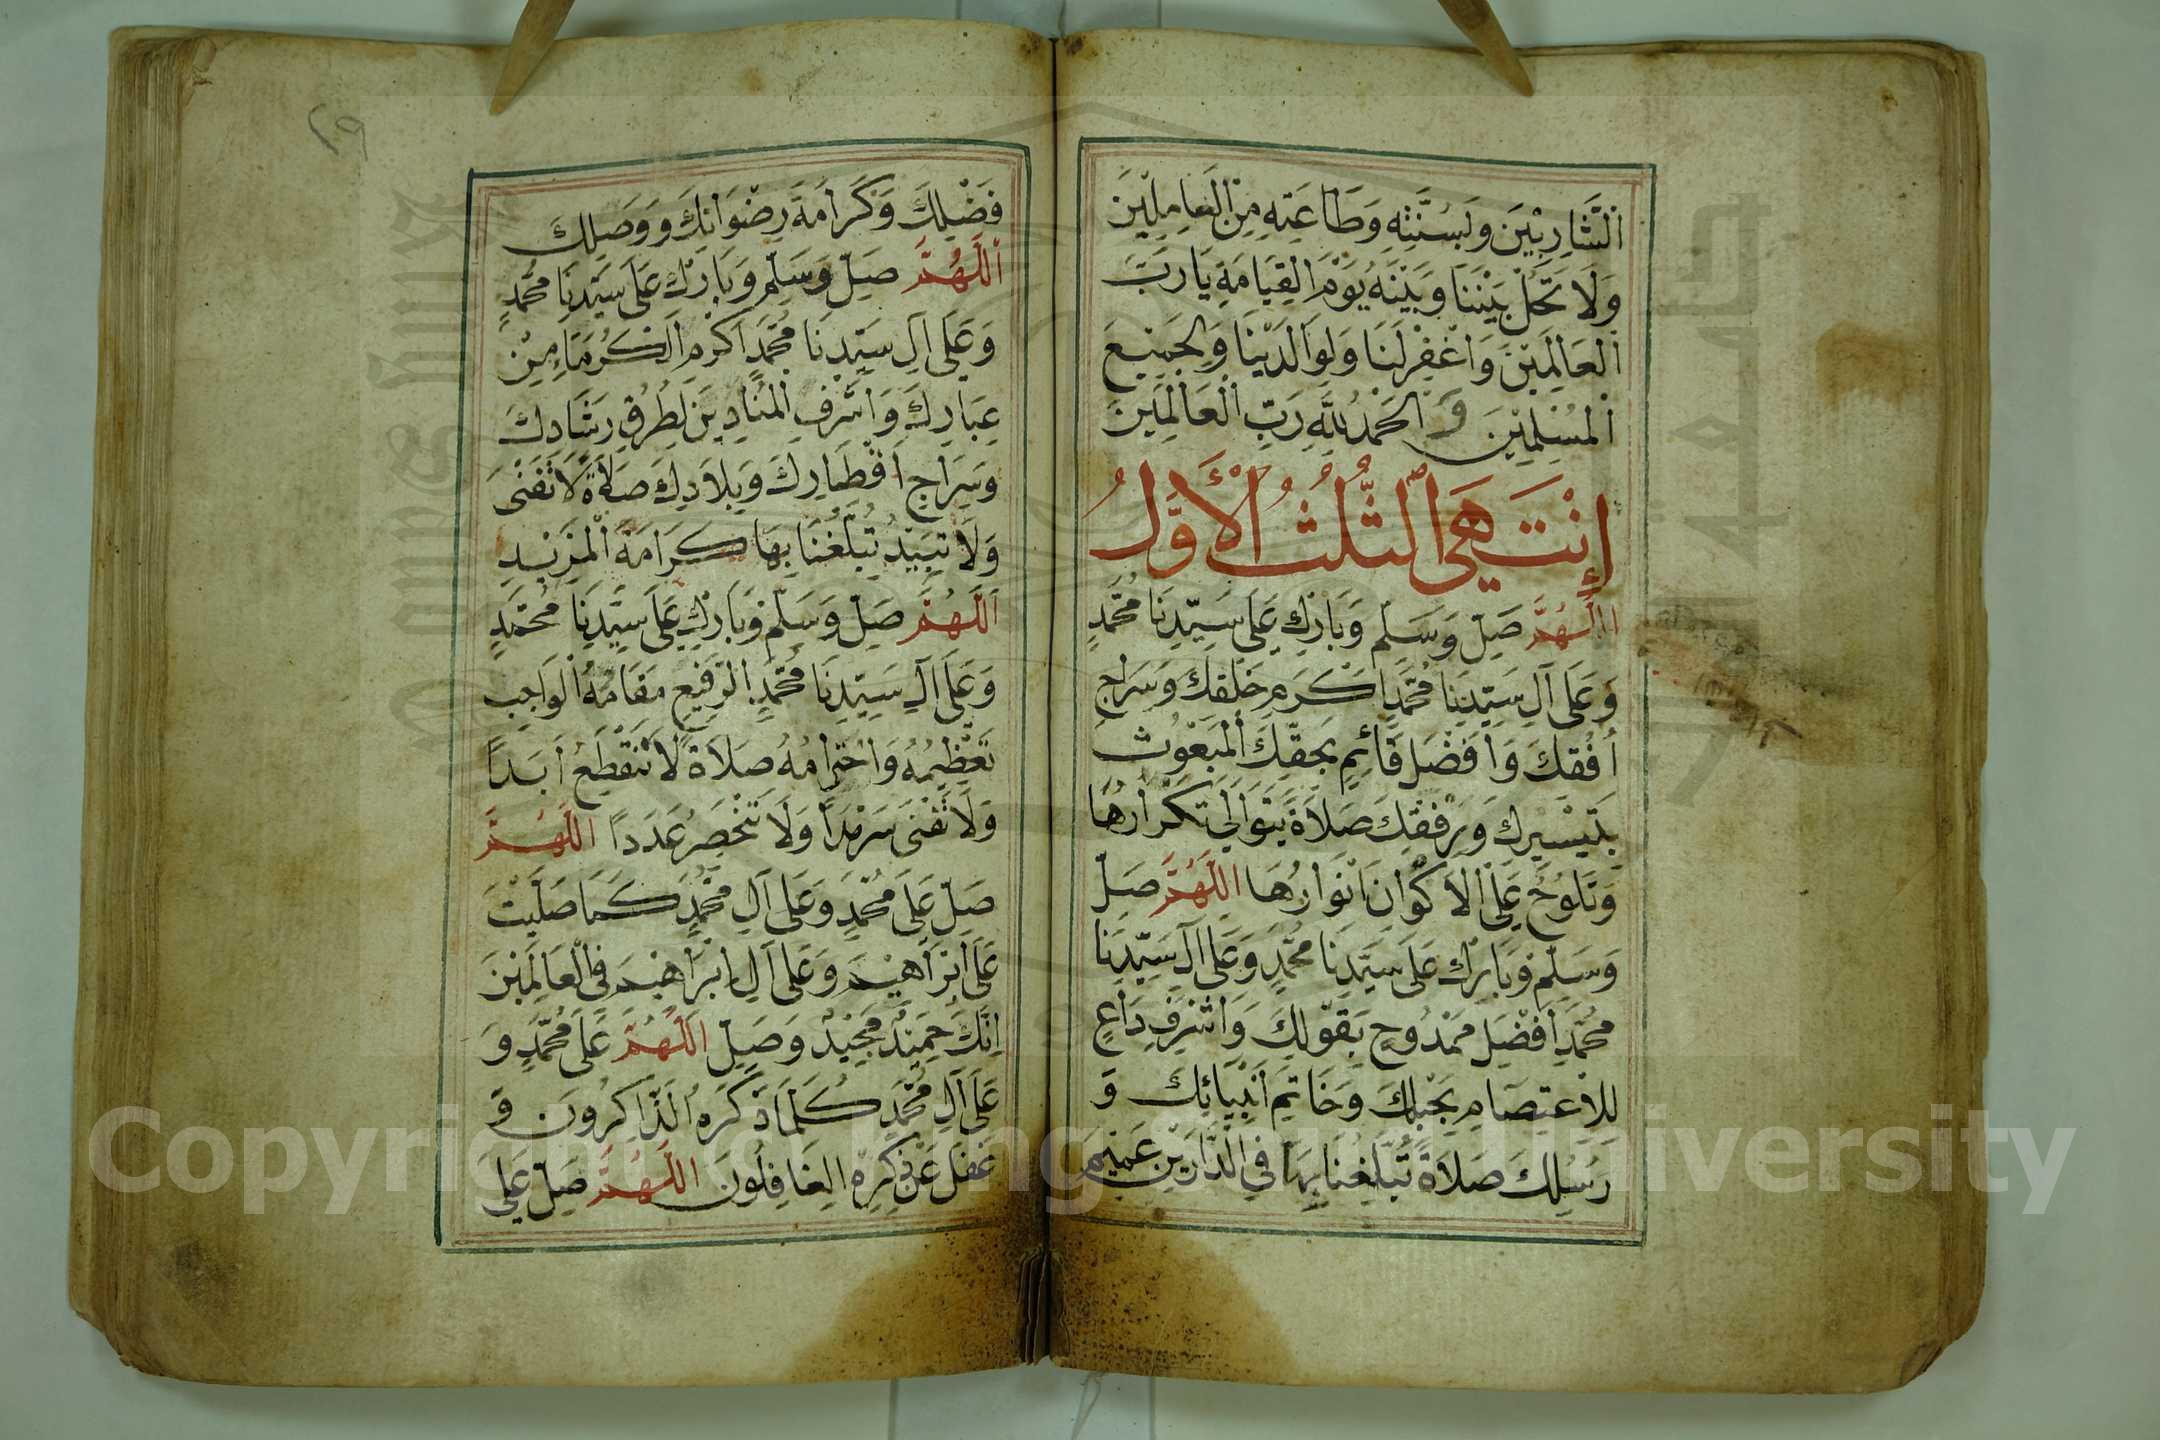 اَلشَّارِبِيْنَ وَلِسُنَّتِهِ وَطَاعَتِهِ مِنَ الْعَامِلِيْنَ
وَلَا تَحُلْ بَيْنَنَا وَبَيْنَهُ يَوْمَ الْقِيَامَةِ يَا رَبَّ
الْعَالَمِيْنَ وَاغْفِرْ لَنَا وَلِوَالَدَيْنَا وَلِجَمِيْعِ
الْمُسْلِمِيْنَ وَالْحَمْدُ لِلَّهِ رَبِّ الْعَالَمِيْنَ
إِنْتَهَى الثُّلُثُ الْأَوَّلُ
اَللّٰهُمَّ صَلِّ وَسَلِّمْ وَبَارِكْ عَلَى سَيِّدِنَا مُحَمَّدٍ
وَعَلَى آلِ سَيِّدِنَا مُحَمَّدٍ اَكْرَمِ خَلْقِكَ وَسِرَاجِ
أُفُقِكَ وَاَفْضَلِ قَائِمٍ بِحَقِّكَ الْمَبْعُوْثِ
بِتَيْسِيْرِكَ وَرِفْقِكَ صَلَاةً يَتَوَالَى تَكْرَارُهَا
وَتَلُوْحُ عَلَى الْاَكْوَانِ اَنْوَارُهَا اَللّٰهُمَّ صَلِّ
وَسَلِّمْ وَبَارِكْ عَلَى سَيِّدِنَا مُحَمَّدٍ وَعَلَى آلِ سَيِّدِنَا
مُحَمَّدٍ اَفْضَلِ مَمْدُوْحٍ بِقَوْلِكَ وَاَشْرَفِ دَاعٍ
لِلْاِعْتِصَامِ بِحَبْلِكَ وَخَاتِمِ اَنْبِيَائِكَ وَ
رُسُلِكَ صَلَاةً تُبَلِّغُنَا بِهَا فِي الدَّارَيْنِ عَمِيْمَ
فَضْلِكَ وَكَرَامَةَ رِضْوَانِكَ وَوَصْلِكَ
اَللّٰهُمَّ صَلِّ وَسَلِّمْ وَبَارِكْ عَلَى سَيِّدِنَا مُحَمَّدٍ
وَعَلَى آلِ سَيِّدِنَا مُحَمَّدٍ اَكْرَمِ الْكُرَمَاءِ مِنْ
عِبَادِكَ وَاَشْرَفِ الْمُنَادِيْنَ لِطُرُقِ رَشَادِكَ
وَسِرَاجِ اَقْطَارِكَ وَبِلَادِكَ صَلَاةً لَا تَفْنَى
وَلَا تَبِيْدُ تُبَلِّغُنَا بِهَا كَرَامَةَ الْمَزِيْدِ
اَللّٰهُمَّ صَلِّ وَسَلِّمْ وَبَارِكْ عَلَى سَيِّدِنَا مُحَمَّدٍ
وَعَلَى آلِ سَيِّدِنَا مُحَمَّدٍ الرَّفِيْعِ مَقَامُهُ الْوَاجِبِ
تَعْظِيْمُهُ وَاحْتِرَامُهُ صَلَاةً لَا تَنْقَطِعُ اَبَدًا
وَلَا تَفْنَى سَرْمَدًا وَلَا تَنْحَصِرُ عَدَدًا اَللّٰهُمَّ
صَلِّ عَلَى مُحَمَّدٍ وَعَلَى آلِ مُحَمَّدٍ كَمَا صَلَّيْتَ
عَلَى اِبْرَاهِيْمَ وَعَلَى آلِ اِبْرَاهِيْمَ فِي الْعَالَمِيْنَ
اِنَّكَ حَمِيْدٌ مَجِيْدٌ وَصَلِّ اَللّٰهُمَّ عَلَى مُحَمَّدٍ وَ
عَلَى آلِ مُحَمَّدٍ كُلَّمَا ذَكَرَهُ الذَّاكِرُوْنَ وَ
غَفَلَ عَنْ ذِكْرِهِ الْغَافِلُوْنَ اَللّٰهُمَّ صَلِّ عَلَى
Copyright © King Saud University